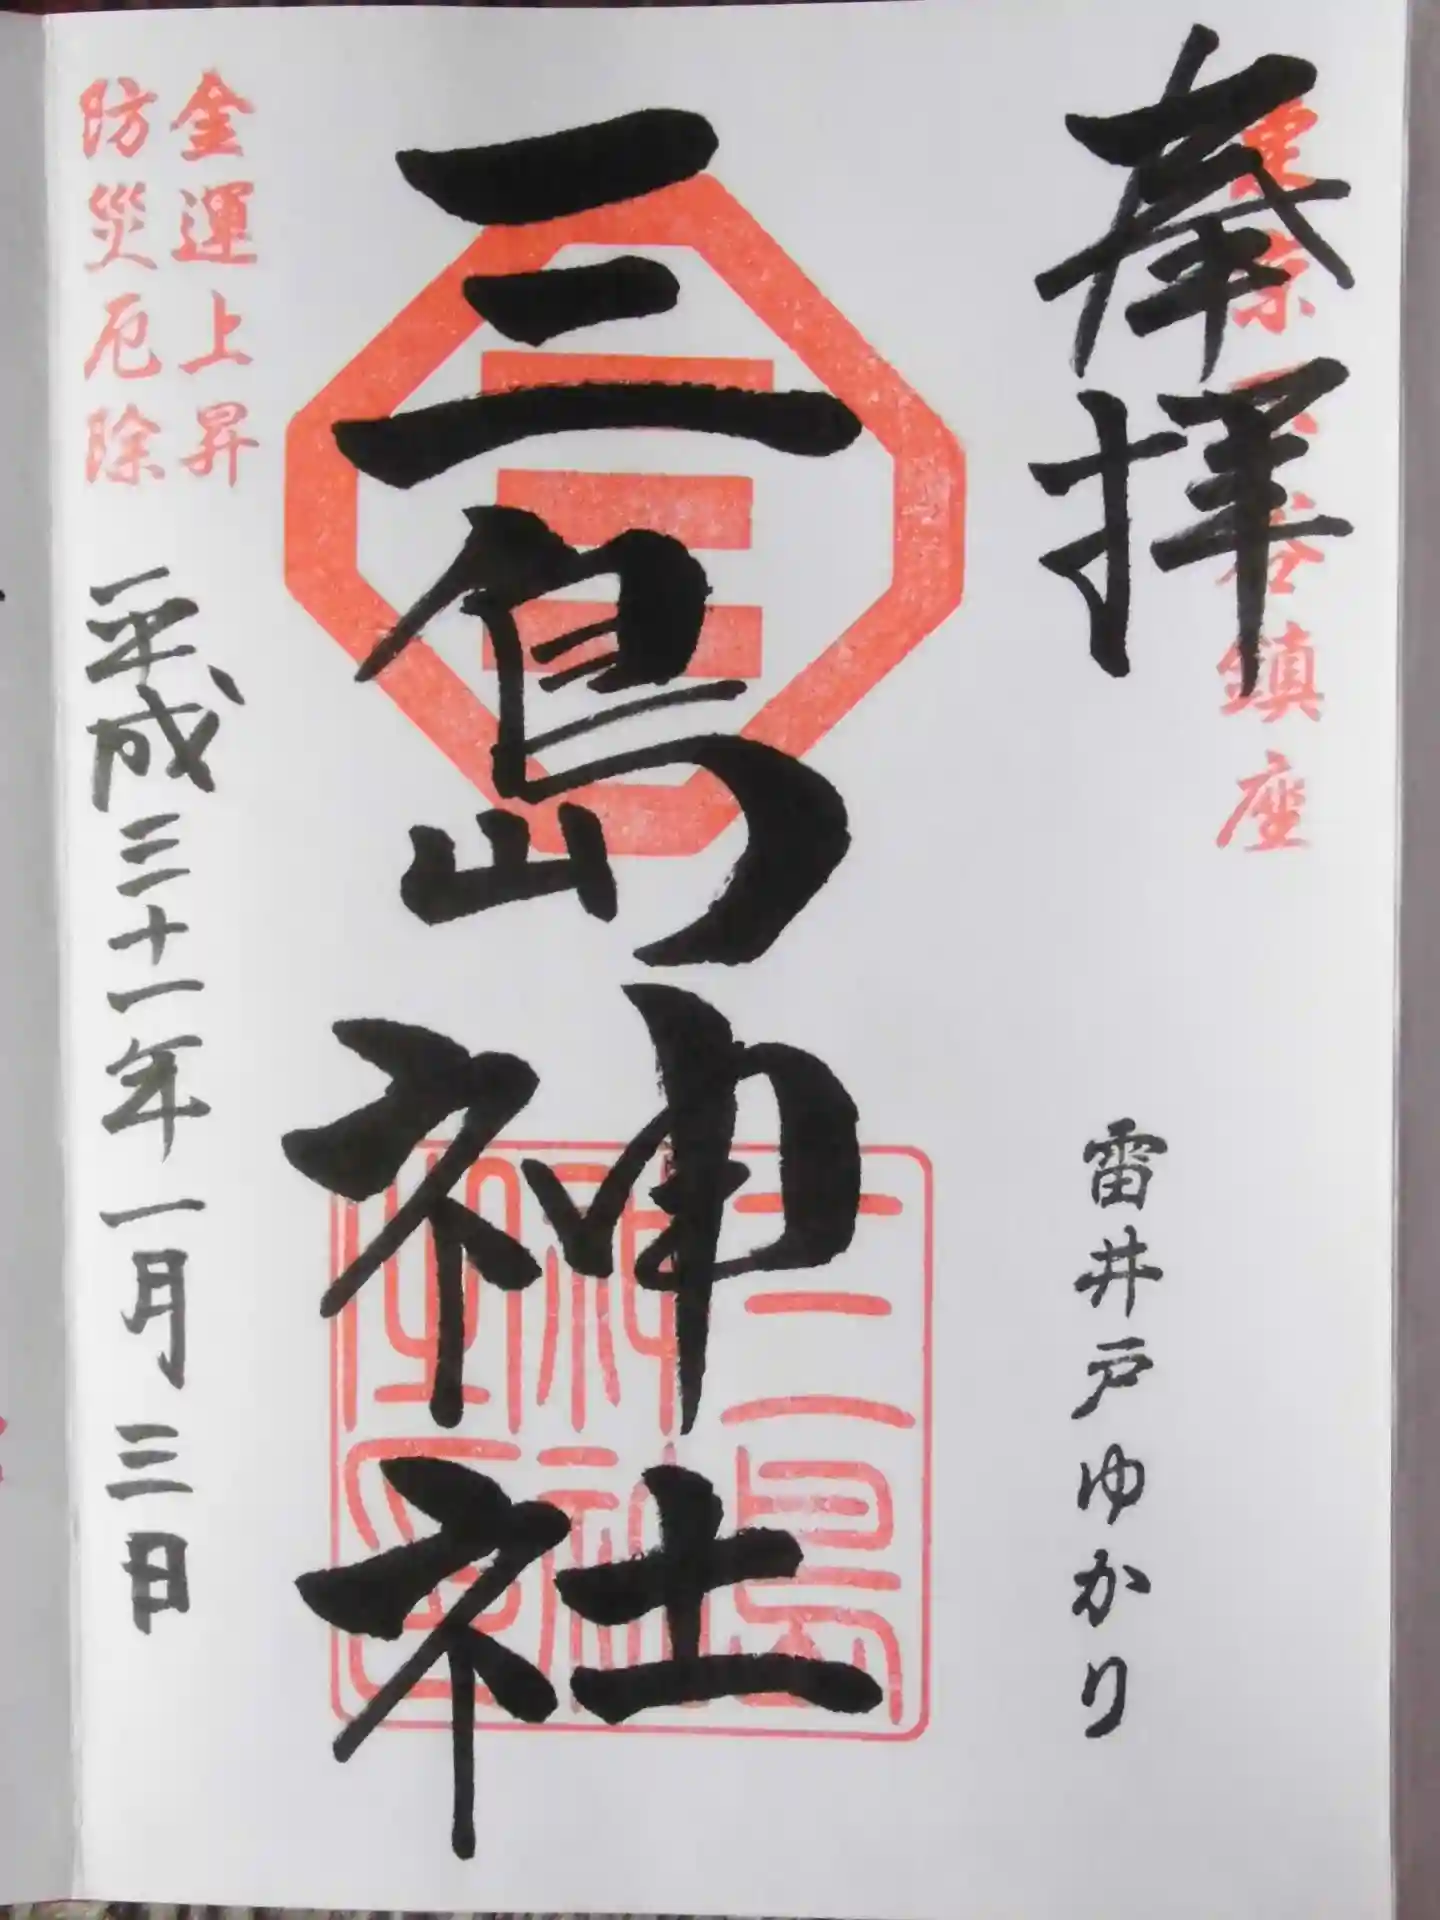 奉拝
東京下谷鎮座
雷井戸ゆかり
三島神社
三島
神社
之印
金運上昇
防災厄除
平成三十一年一月三日